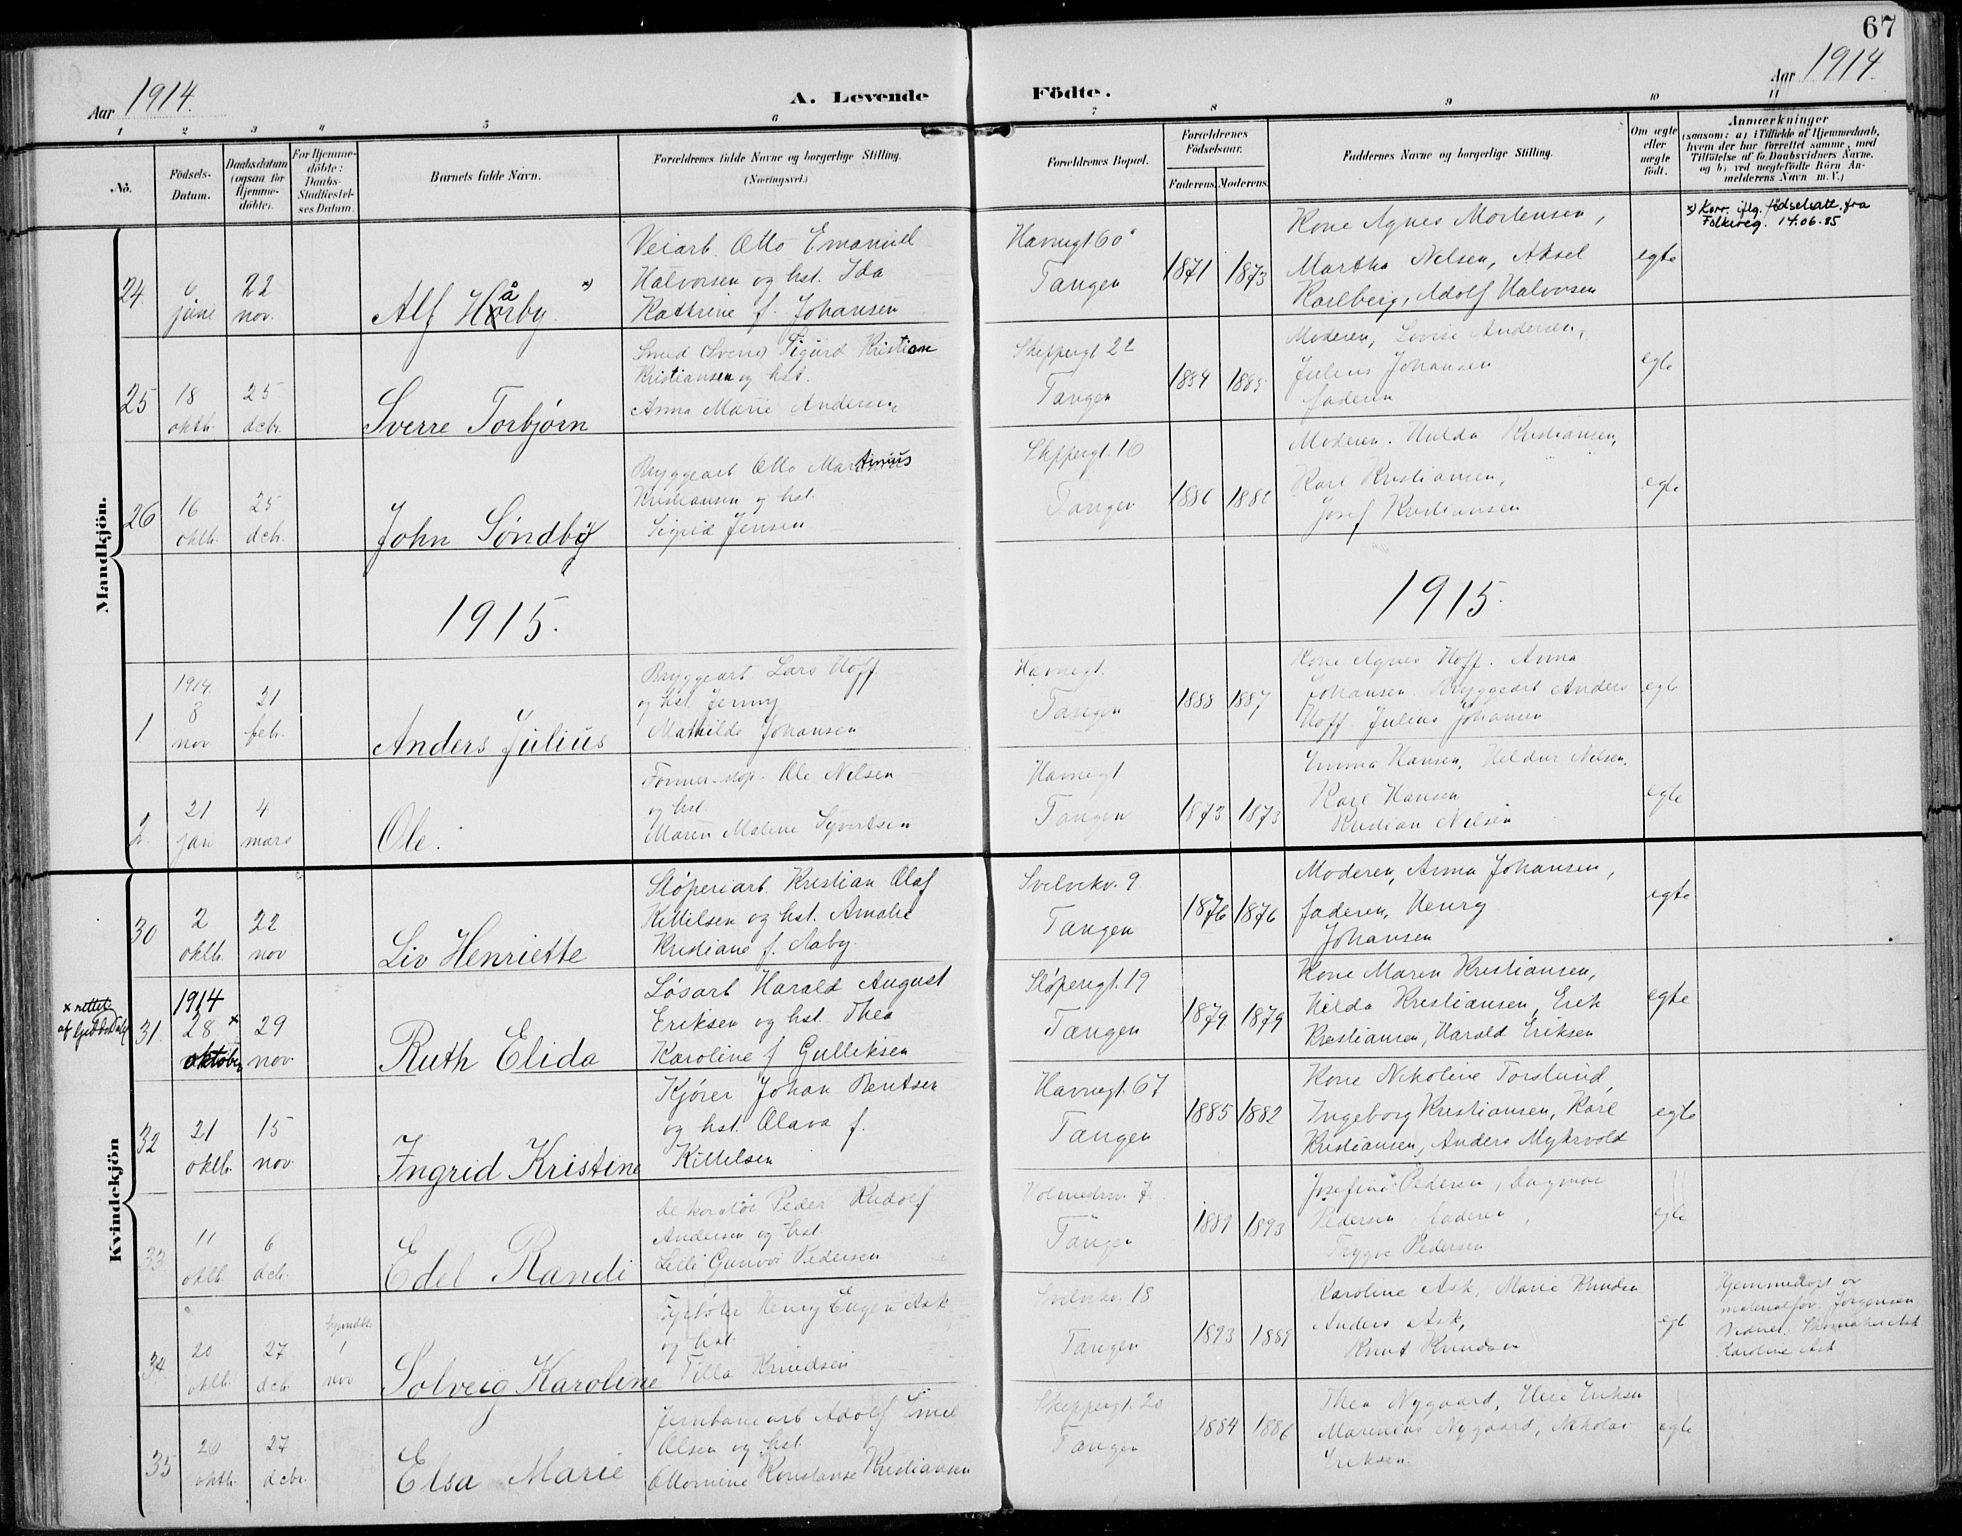 67
Aar 1914.
A. Levende Födte.
Aar 1914.
1 2 3 4 5 6 7 8 9 10 11
No.
Födsels-Datum.
Daabsdatum (ogsaa for Hjemme-döbte).
For Hjemme-döbte: Daabs-Stadfæstel-ses Datum.
Barnets fulde Navn.
Forældrenes fulde Navne og borgerlige Stilling.
(Næringsvei.)
Forældrenes Bopæl.
Forældrenes Födselsaar.
Faderens. Moderens.
Faddernes Navne og borgerlige Stilling.
Om ægte eller uægte födt.
Anmærkninger
(saasom: a) i Tilfælde af Hjemmedaab, hvem der har forrettet samme, med Tilföielse af to Daabsvidners Navne, og b) ved uægtefödte Börn Anmelderens Navn m. V.)
x) Korr. iflg. fødselsatt. fra
Folkereg. 14.06.85
Mandkjön.
24
6 june
22 nov.
Alf Hårby x)
Veiarb. Otto Emanuel
Halvorsen og hst. Ida
Kathrine f. Johansen
Havnegt 60
Tangen
1871 1873
Kone Agnes Mortensen,
Martha Nelsen, Aksel
Karlberg, Adolf Halvorsen
egte
25
18 oktb.
25 dcbr.
Sverre Torbjørn
Smed (Sverre) Sigurd Kristian
Kristiansen og hst.
Anna Marie Andersen
Skippergt 22
Tangen
1884 1885
Moderen, Lovise Andersen,
Julius Johansen
faderen
egte
26
16 oktb.
25 dcb.
John Søndby
Bryggearb Otto Martinius
Kristiansen og hst.
Sigrid Jensen
Skippergt. 16
Tangen
1880 1882
Moderen. Hulda Kristiansen,
Karl Kristiansen,
Josef Kristiansen
egte
1915. 1915.
1
1914.
8 nov
21 feb.
Anders Julius
Bryggearb Lars Hoff
og hst Jenny
Mathilde Johansen
Havnegt.
Tangen
1888 1887
Kone Agnes Hoff. Anna
Johansen. Bryggearb Anders
Hoff. Julius Johansen
egte
2
21 jan
4 mars
Ole.
Ole Nelsen
og hst
Maren Malene Syvertsen
Havnegt
Tangen
1873 1873
Emma Hansen, Heldur Nelsen.
Karl Hansen
Kristian Nelsen
egte
Kvindekjön
30
2 oktb.
22 nov
Liv Henriette
Støperiarb. Kristian Olaf
Kittilsen og hst. Amalie
Kristiane f. Aaby.
Svelvikv. 9
Tangen
1876 1876
Moderen, Anna Johansen,
faderen, Henry
Johansen
egte
x rettet
31
1914
28 x oktober
29 nov.
Ruth Elida
Løsarb Harald August
Eriksen og hst. Thea
Karoline f Gulliksen
Støperigt. 19
Tangen
1879 1879
Kone Maren Kristiansen,
Hilda Kristiansen, Erik
Kristiansen, Harald Eriksen
egte
32
21 oktb.
15 nov.
Ingrid Kristine
Kjører Johan Bentsen
og hst. Olava f.
Kittelsen
Havnegt. 67
Tangen
1885 1882
Kone Nikoline Torslund,
Ingeborg Kristiansen, Karl
Kristiansen, Anders Myhrvold
egte
33
11 oktb.
6 dcb.
Edel Randi
Peder Rudolf
Andersen og hst
Lilli Gunvor Pedersen
Tangen
1889 1893
Josefine Pedersen, Dagmar
Pedersen, faderen,
Trygve Pedersen
egte
34
20 oktb.
27 dcb.
1 nov
Solveig Karoline
Henry Eugen Ask
og hst.
Tilla Knudsen
Svelvikv. 18
Tangen
1893 1889
Karoline Ask, Marie Knudsen
Anders Ask,
Knut Knudsen
egte
Hjemmedøpt av
Jørgensen
Karoline Ask
35
26 oktb.
27 dcbr.
Elsa Marie
Jernbanearb Adolf Emil
Olsen og hst.
Ottomine Konstanse Kristiansen
Skippergt. 20
Tangen
1884 1886
Thea Nygaard, Eriksen
Marenius Nygaard, Nikolai
Eriksen.
egte